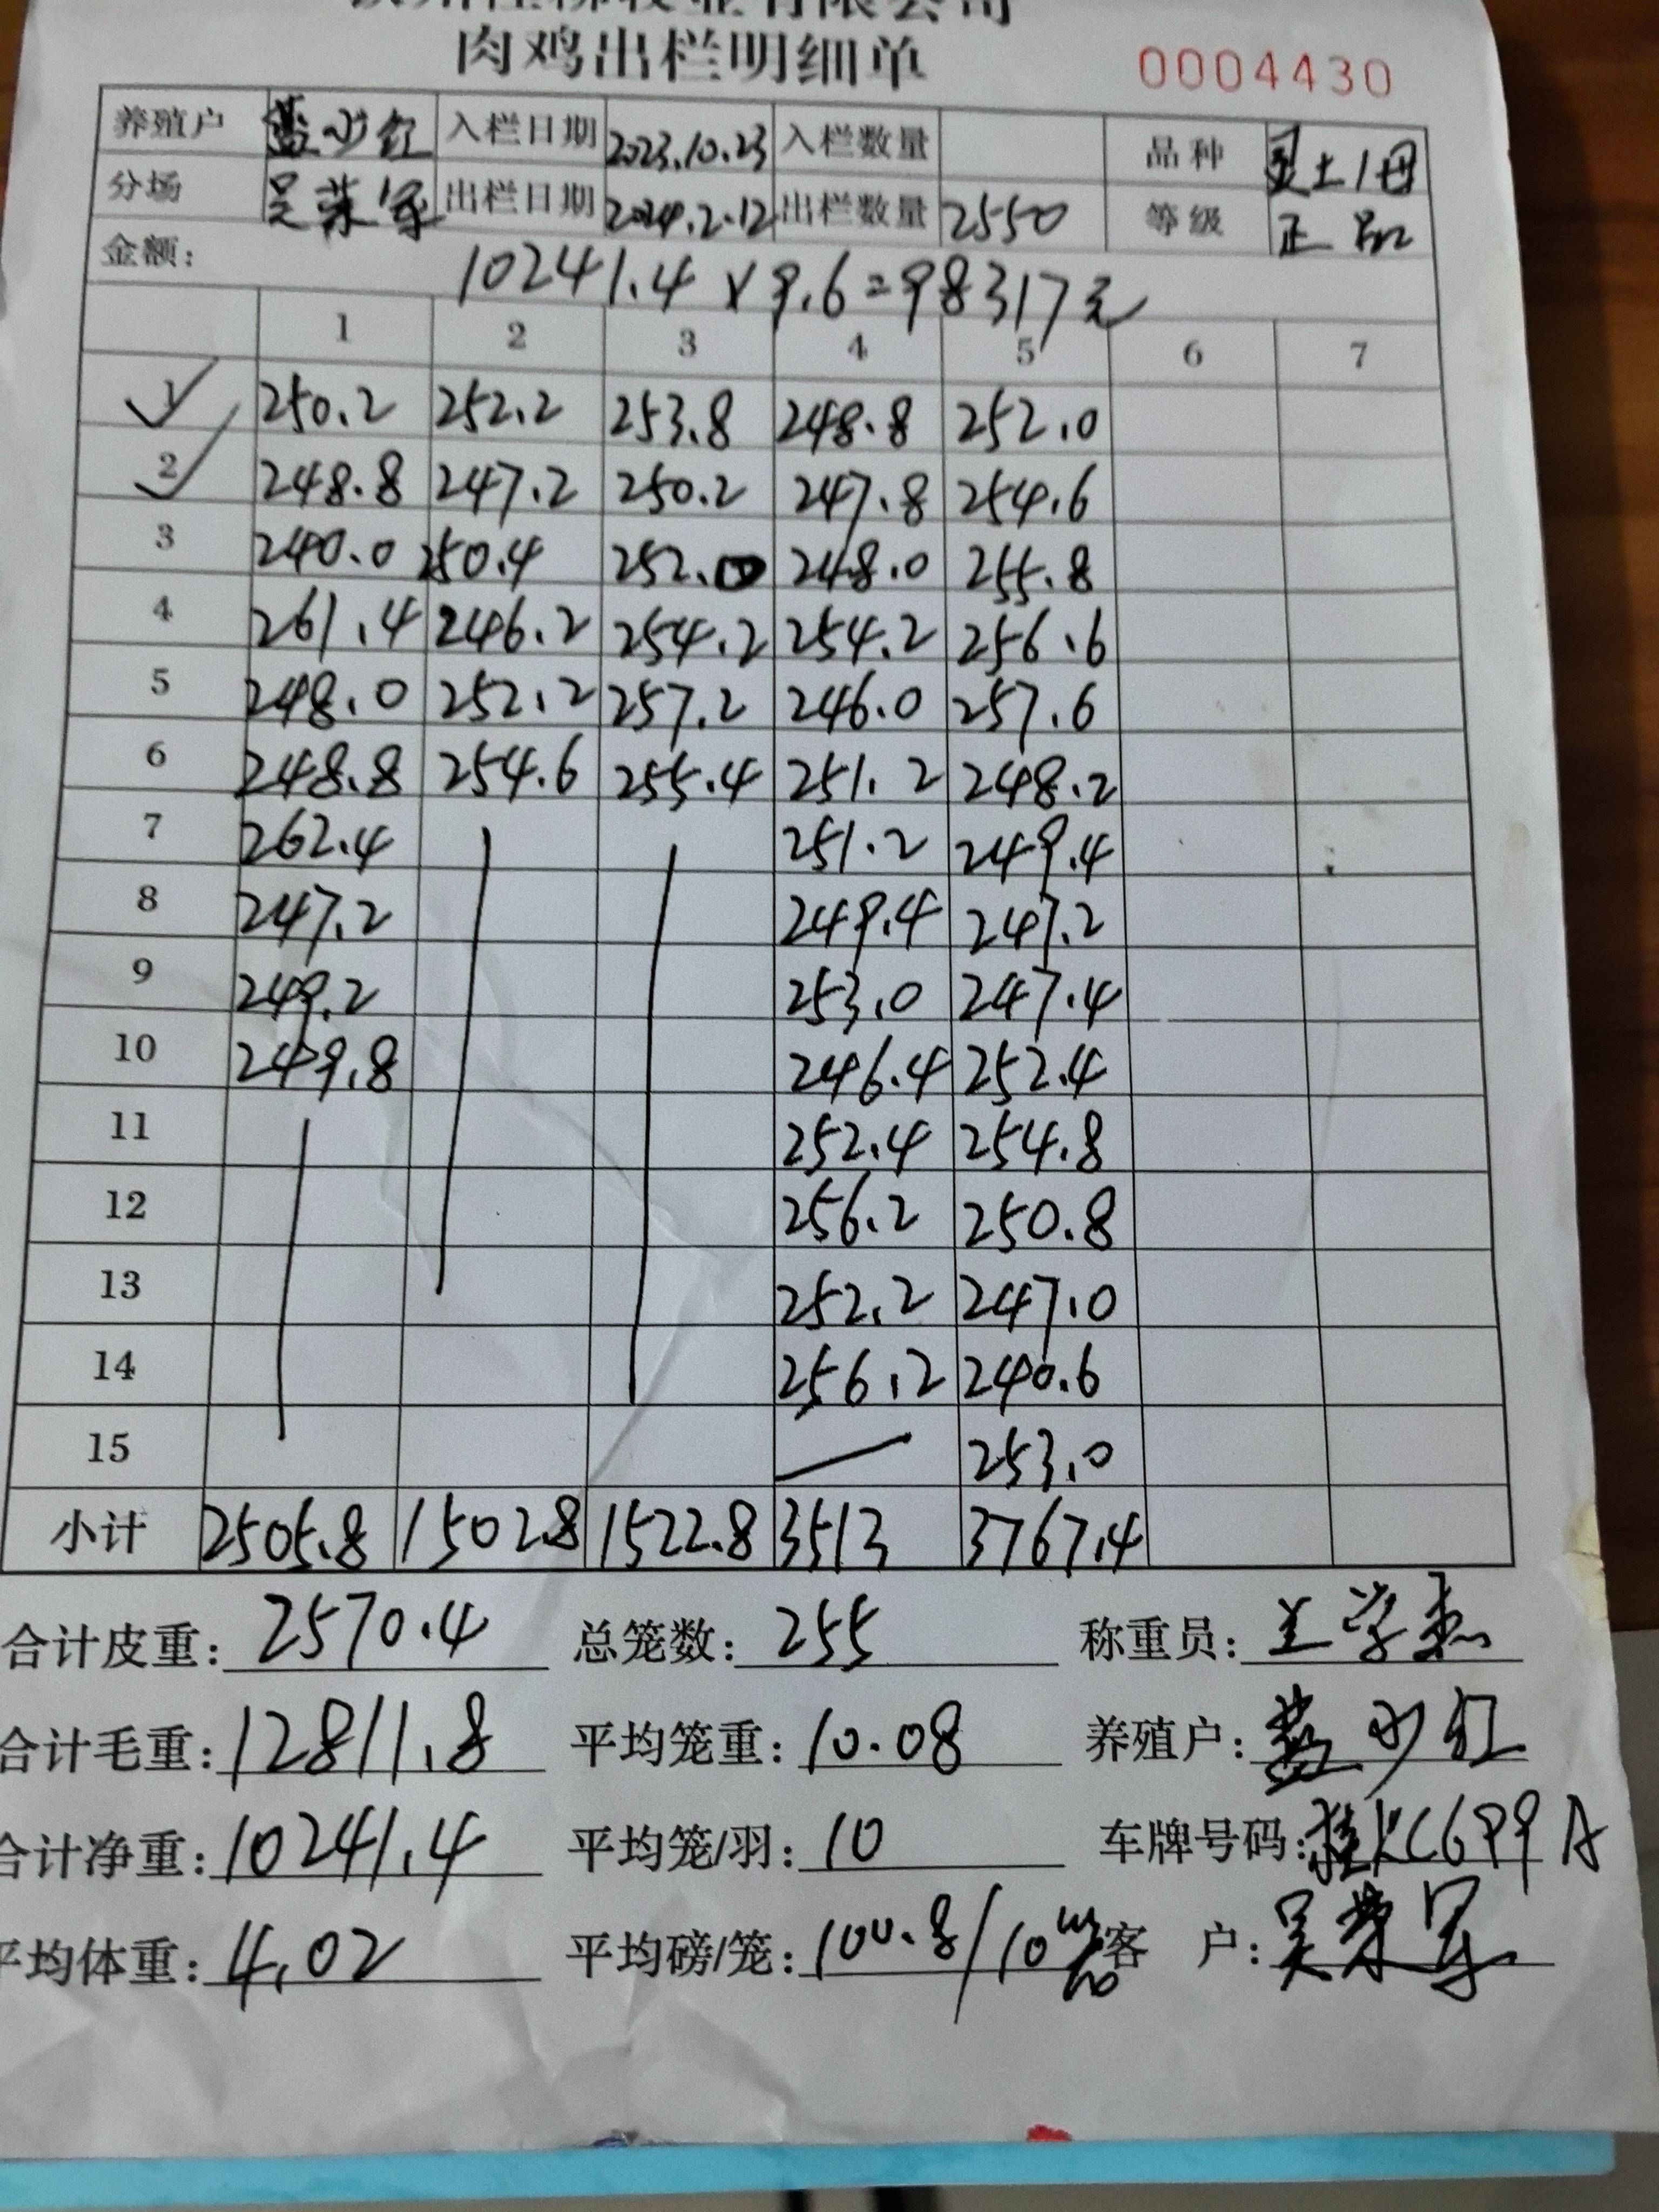 有限公司
肉鸡出栏明细单 0004430
养殖户 蓝少红 入栏日期 2023.10.23 入栏数量 品种 土1母
分场 吴荣军 出栏日期 2024.2.12 出栏数量 2550 等级 正品
金额: 10241.4×9.6=98317元
1 2 3 4 5 6 7
1 250.2 252.2 253.8 248.8 252.0
2 248.8 247.2 250.2 247.8 254.6
3 240.0 250.4 252.0 248.0 255.8
4 261.4 246.2 254.2 254.2 256.6
5 248.0 252.2 257.2 246.0 257.6
6 248.8 254.6 255.4 251.2 248.2
7 262.4 251.2 249.4
8 247.2 249.4 247.2
9 249.2 253.0 247.4
10 249.8 246.4 252.4
11 252.4 254.8
12 256.2 250.8
13 252.2 247.0
14 256.2 240.6
15 253.0
小计 2505.8 1502.8 1522.8 3513 3767.4
合计皮重: 2570.4 总笼数: 255 称重员: 兰学
合计毛重: 12811.8 平均笼重: 10.08 养殖户: 蓝少红
合计净重: 10241.4 平均笼/羽: 10 车牌号码: 桂KC699A
平均体重: 4.02 平均磅/笼: 100.8/10 客 户: 吴荣军